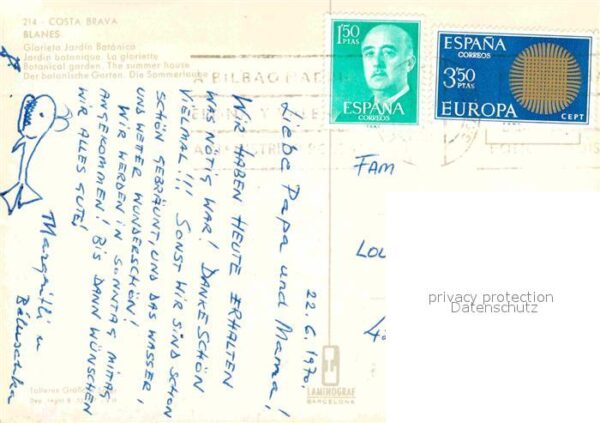 214 - COSTA BRAVA
BLANES
Glorieta Jardín Botánico
Jardin botanique. La gloriette
Botanical garden. The summer house
Der botanische Garten. Die Sommerlaube
1'50
PTAS
ESPAÑA
CORREOS
ESPAÑA
CORREOS
3'50
PTAS
EUROPA
CEPT
BILBAO
22.6.1970.
Liebe Papa und Mama!
WIR HABEN HEUTE ERHALTEN
WAS WAR! DANKESCHÖN
VIELMAL!!! SONST WIR SIND SCHON
SCHÖN GEBRÄUNT, UND DAS WASSER,
UND WETER WUNDERSCHÖN!
WIR WERDEN IN SONNTAG MITAG
ANGEKOMMEN! BIS DANN WÜNSCHEN
WIR ALLES GUTE!
Margritli u
FAM
LOU
privacy protection
Datenschutz
LAMINOGRAF
BARCELONA
Talleres